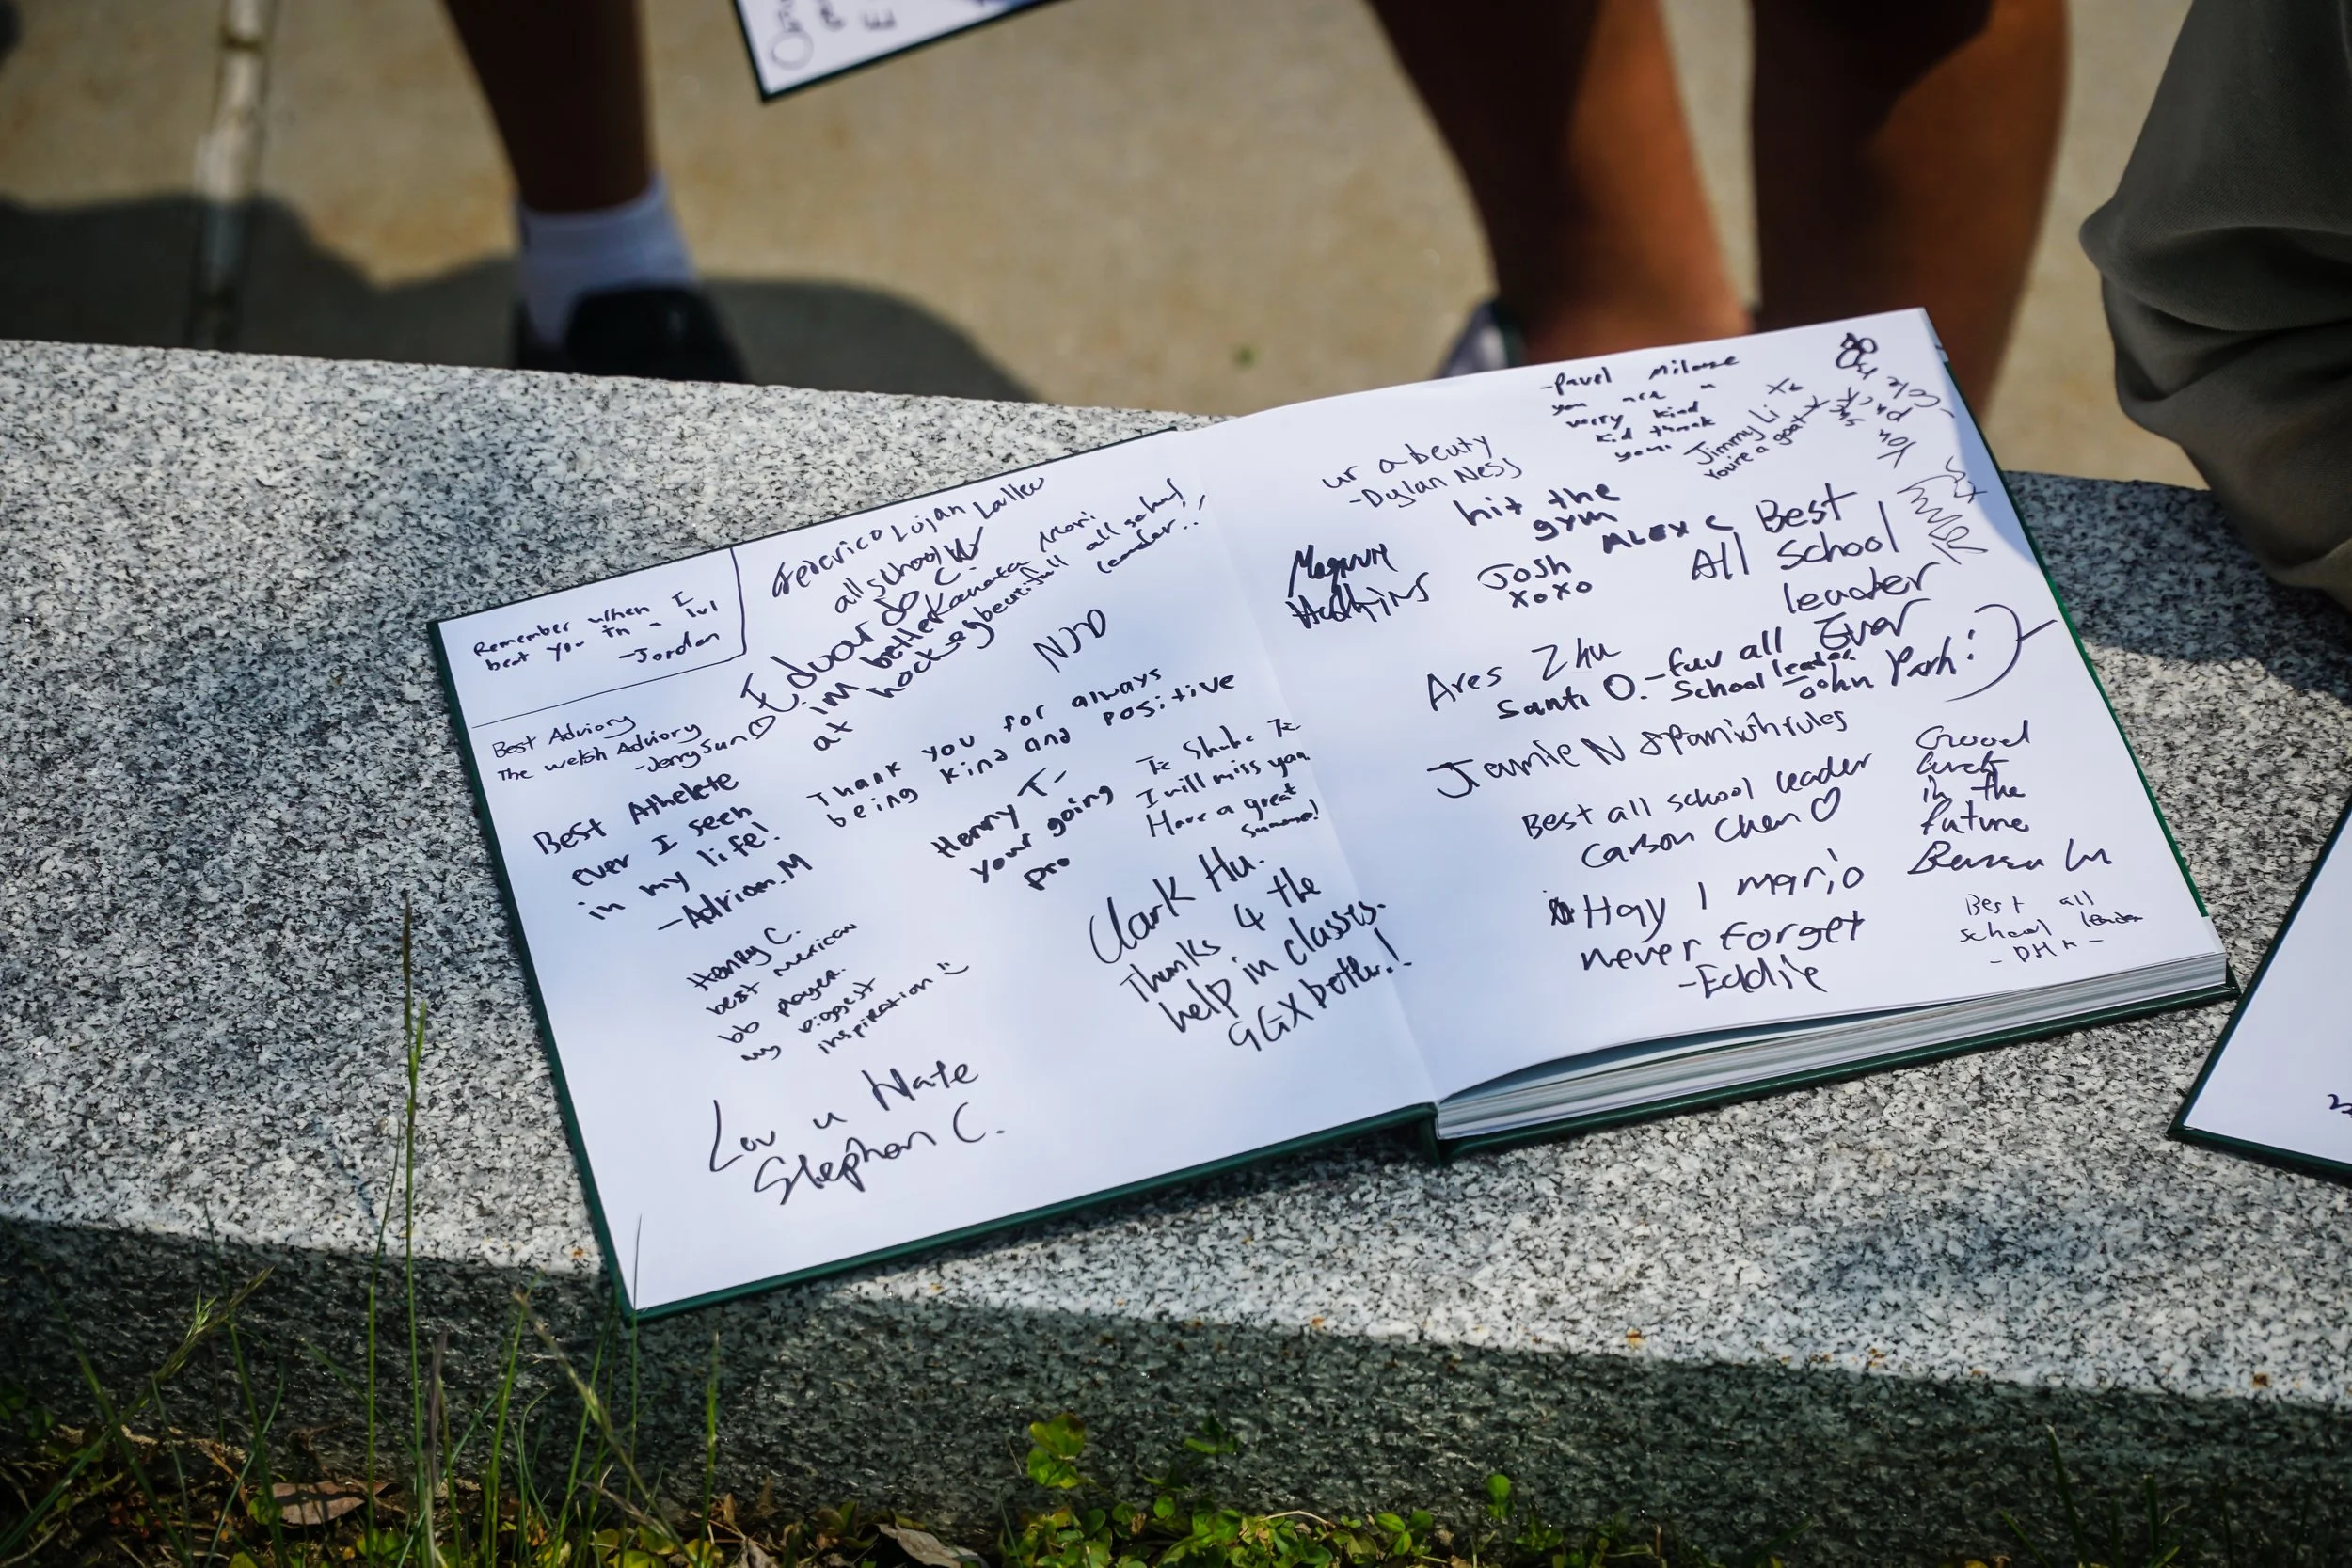 Remember when I
beat you in a 1v1
-Jordan
Best Adviory
The welsh Adviory
-Jerry Sun ♡
Best Athelete
ever I seen
in my life!
-Adrian.M
Henry C.
best mexican
bb player.
my biggest
inspiration
Lov u Nate
Stephan C.
Federico Lujan
all school
Eduardo C.
im better
at hockey
Kanata Mori
beautifull all school
leader..!
NJD
Thank you for always
being kind and positive
Henry T-
your going
pro
I will miss you
Have a great
summer!
Clark Hu.
Thanks 4 the
help in classes.
GGX better!
ur a beuty
-Dylan Ness
-Pavel
you are a
verry kind
kid thank
you
Jimmy Li
You're a goat
hit the
gym
ALEX C
Josh
xoxo
Best
All School
leader
Ever
John
Ares Zhu
Santi O. -fuv all
School leader
Jamie N Spanish rules
Best all school leader
Carson Chen ♡
Hay 1 mario
never forget
-Eddie
Good
luck
in the
future
Best all
school leader